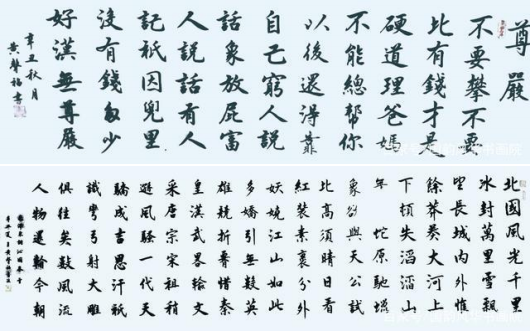 尊嚴
不要攀不要
比有錢才是
硬道理爸媽
不能總幫你
以後還得靠
自己窮人說
話象放屁富
人說話有人
記祇因兜里
沒有錢多少
好漢無尊嚴
辛丑秋月
黄聲福書
北國風光千里
冰封萬里雪飄
望長城内外惟
餘莽莽大河上
下頓失滔滔山
蛇原馳
象欲與天公試
比高須晴日看
紅裝素裹分外
妖嬈江山如此
多嬌引無數英
雄競折腰惜秦
皇漢武略輸文
采唐宗宋祖稍
遜風騷一代天
驕成吉思汗祇
識彎弓射大雕
俱往矣數風流
人物還看今朝